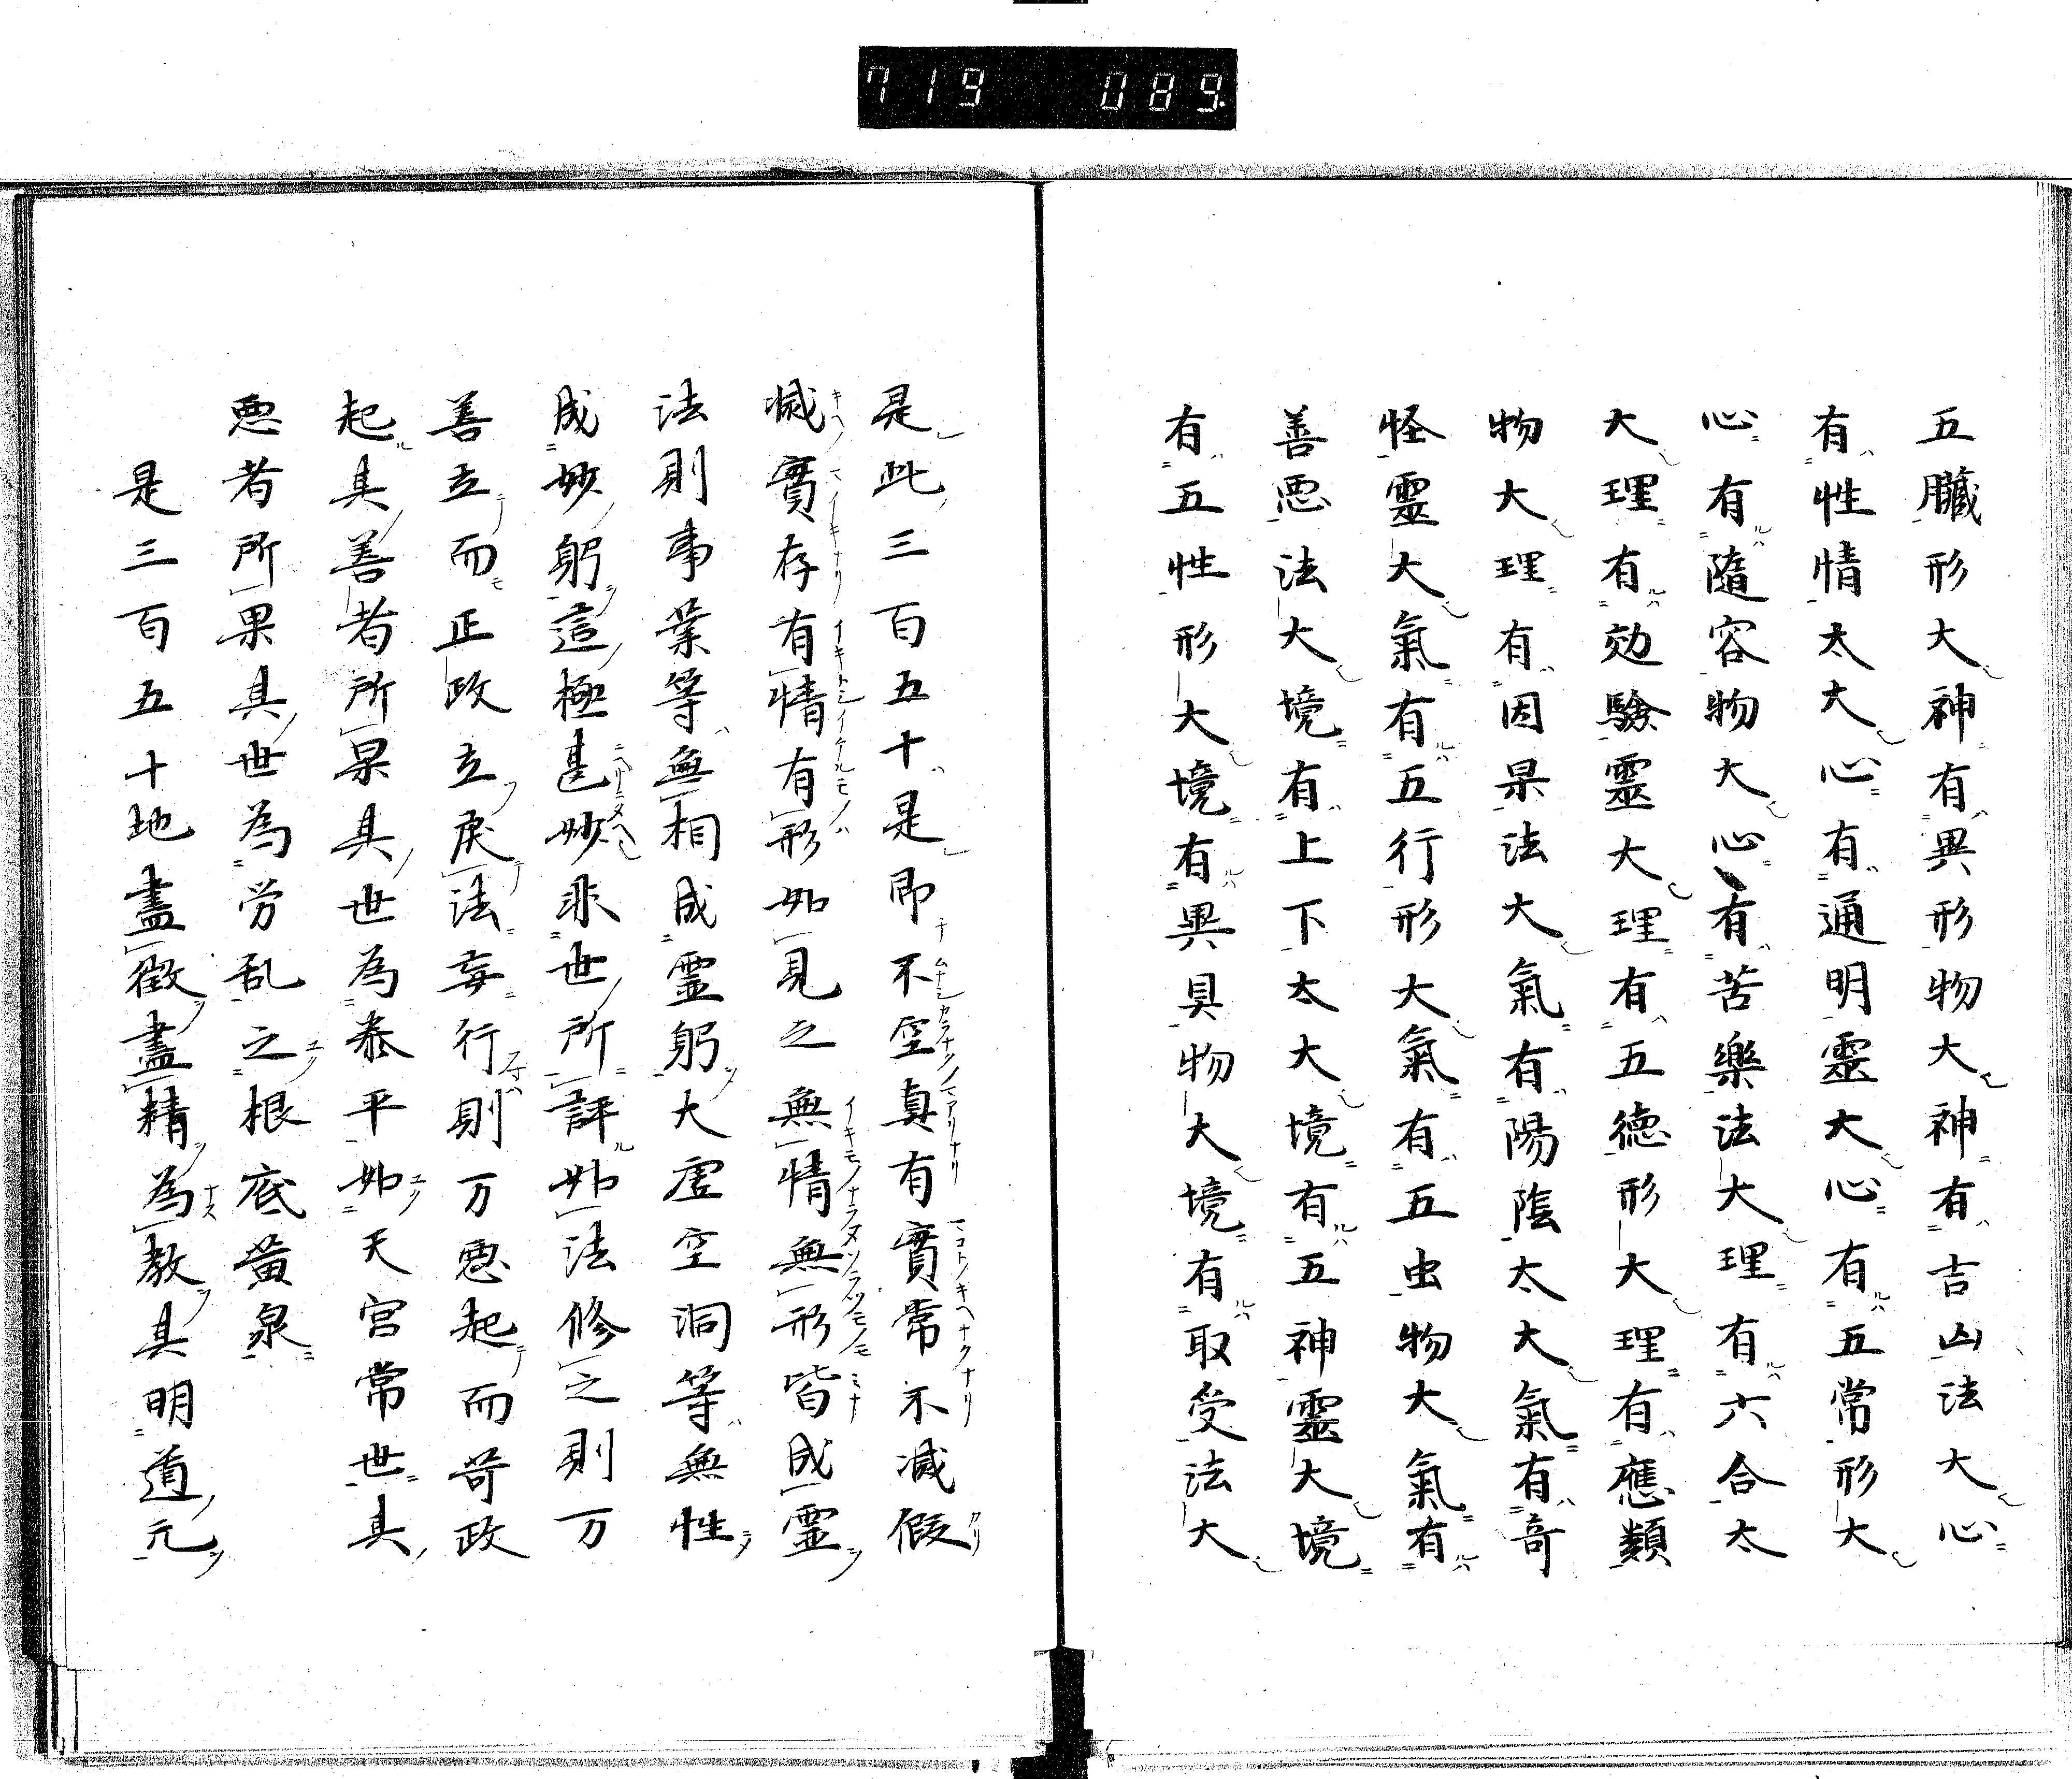 719 089
五臟形大神有異形物大神有吉凶法大心
有性情太大心有通明靈大心有五常形大
心有隨容物大心有苦樂法大理有六合太
大理有効驗靈大理有五德形大理有應類
物大理有因果法大氣有陽陰太大氣有奇
怪靈大氣有五行形大氣有五虫物大氣有
善惡法大境有上下太大境有五神靈大境
有五性形大境有異具物大境有取受法大
是此三百五十是即不空真有實常不減假
減實存有情有形如見之無情無形皆成霊
法則事業等無相成霊躬大虚空洞等無性
成妙躬這極甚妙非世所評如法修之則万
善立而正政立戻法妄行則万悪起而苛政
起其善者所果其世為泰平如天宮常世其
悪者所果其世為労乱之根底黄泉
是三百五十地盡徴盡精為教其明道元